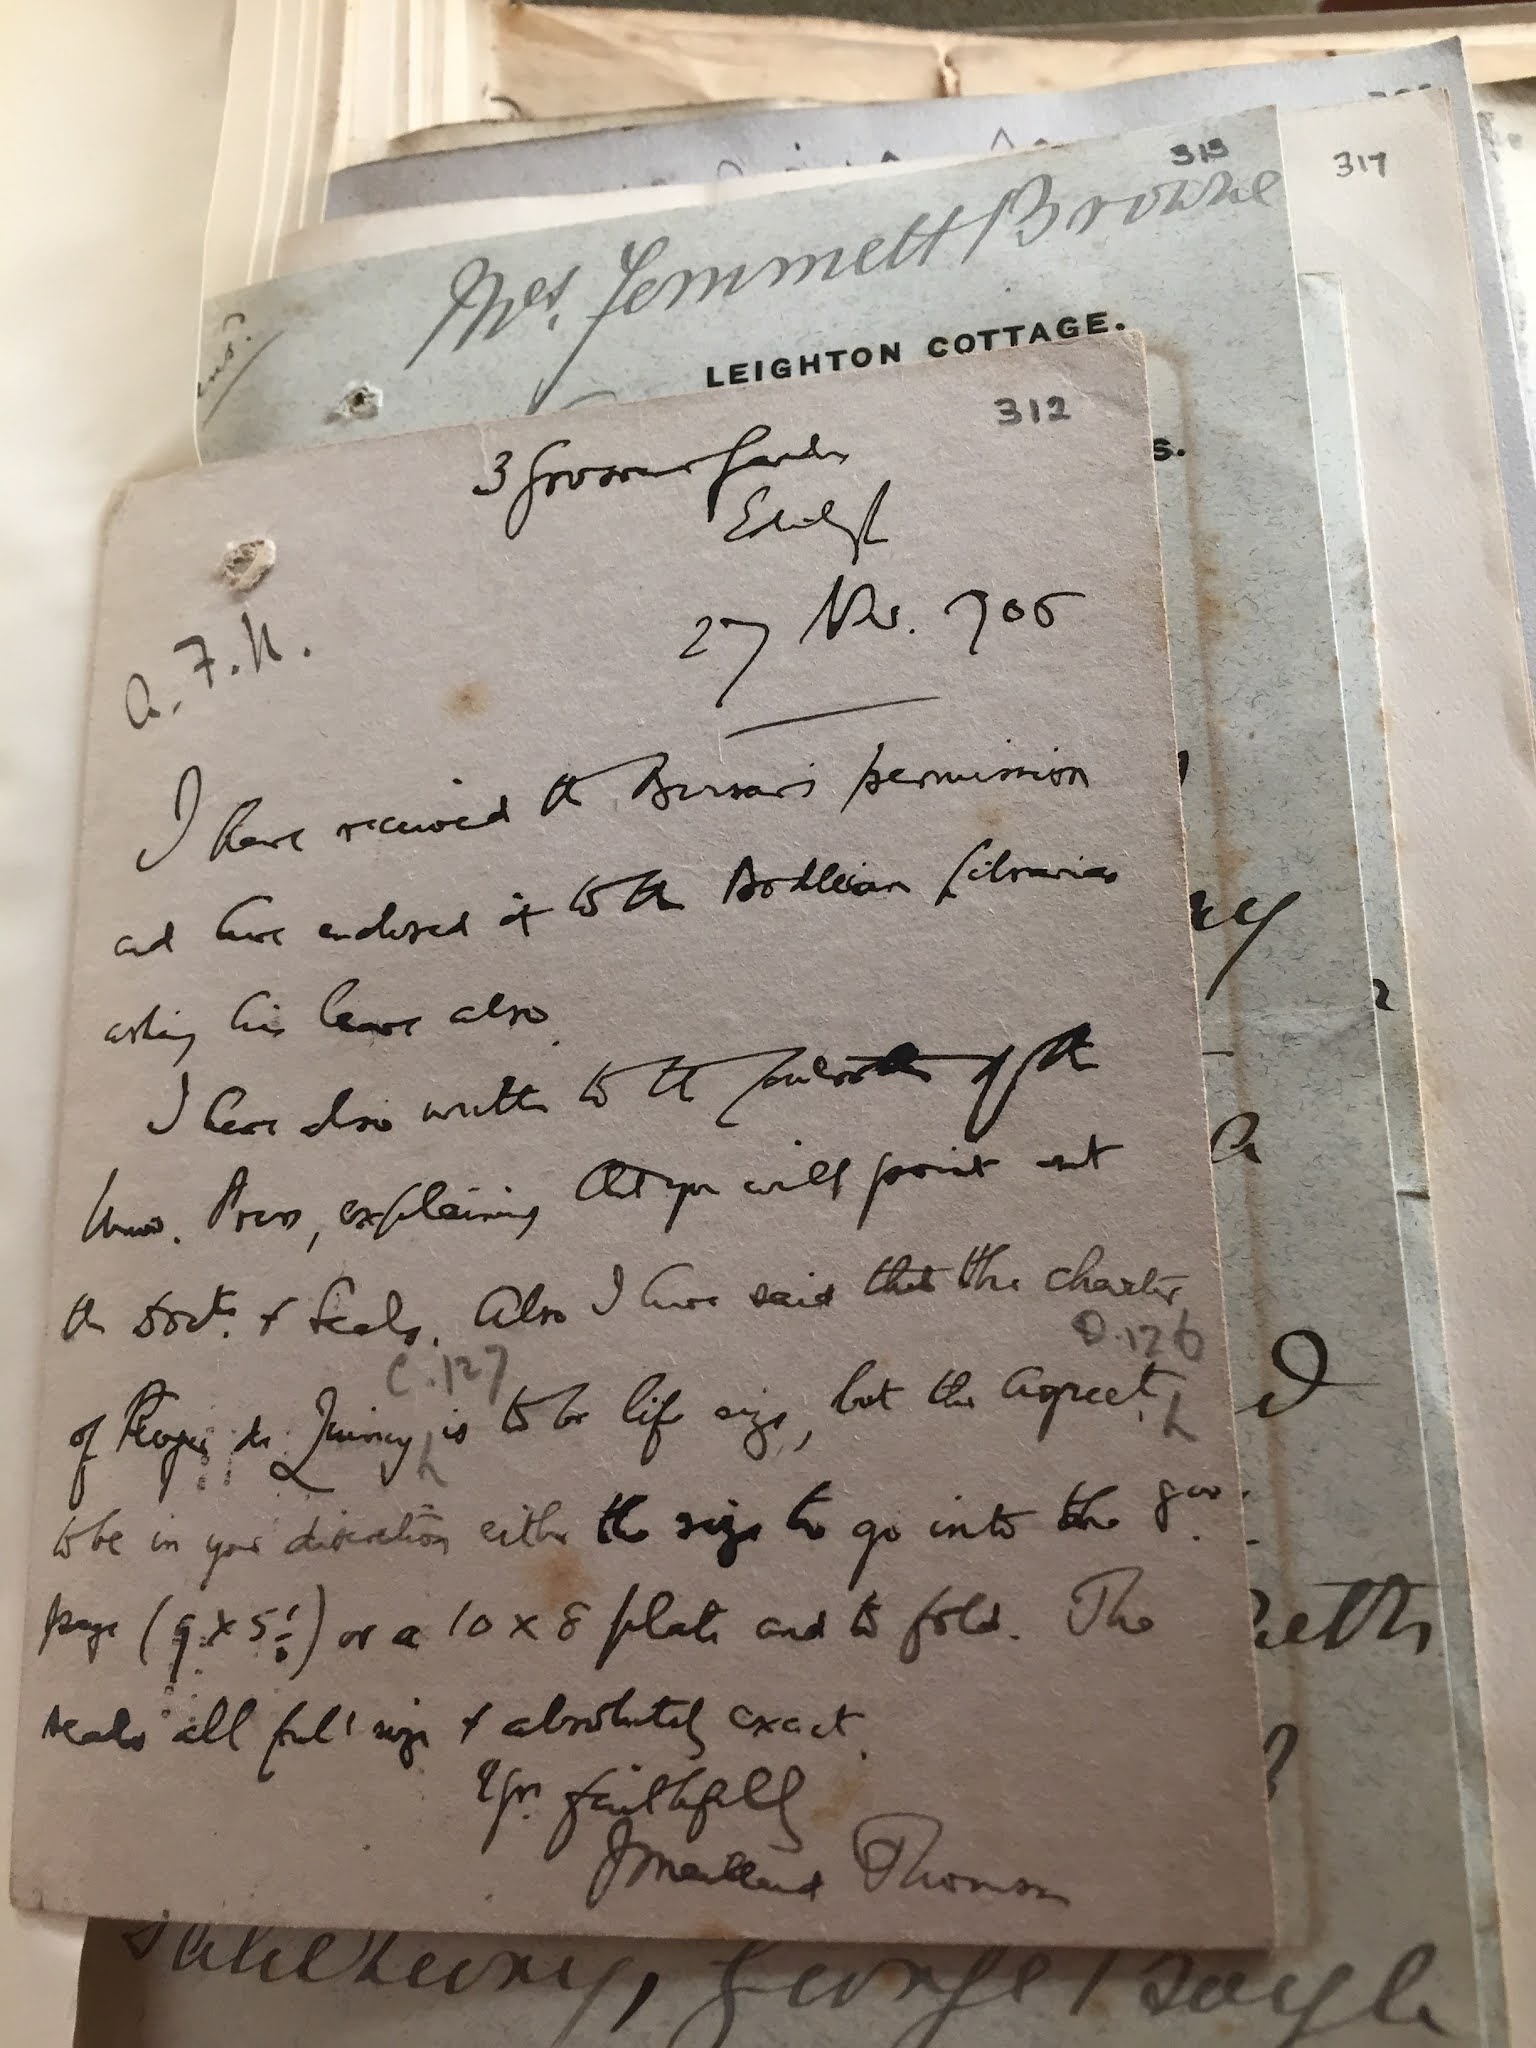 315
317
Mrs. Jemmett Browne
LEIGHTON COTTAGE.
312
3 Grosvenor Gardens
Edinbgh
27 Nov. 906
A.F.H.
I have received the Bursar's permission
and have enclosed it to the Bodleian Librarian
asking his leave also.
I have also written to the of the
Univ. Press, explaining that you will point out
the docts. & seals. Also I have said that the charter
D.126
C.127
of Roger de Quincy is to be life size, but the Agreet.
to be in your discretion either the size to go into the 8vo.
page (9 x 5½) or a 10 x 8 plate and to fold. The
seals all full size & absolutely exact.
Yrs. faithfully
J Maitland Thomson
George Bayle